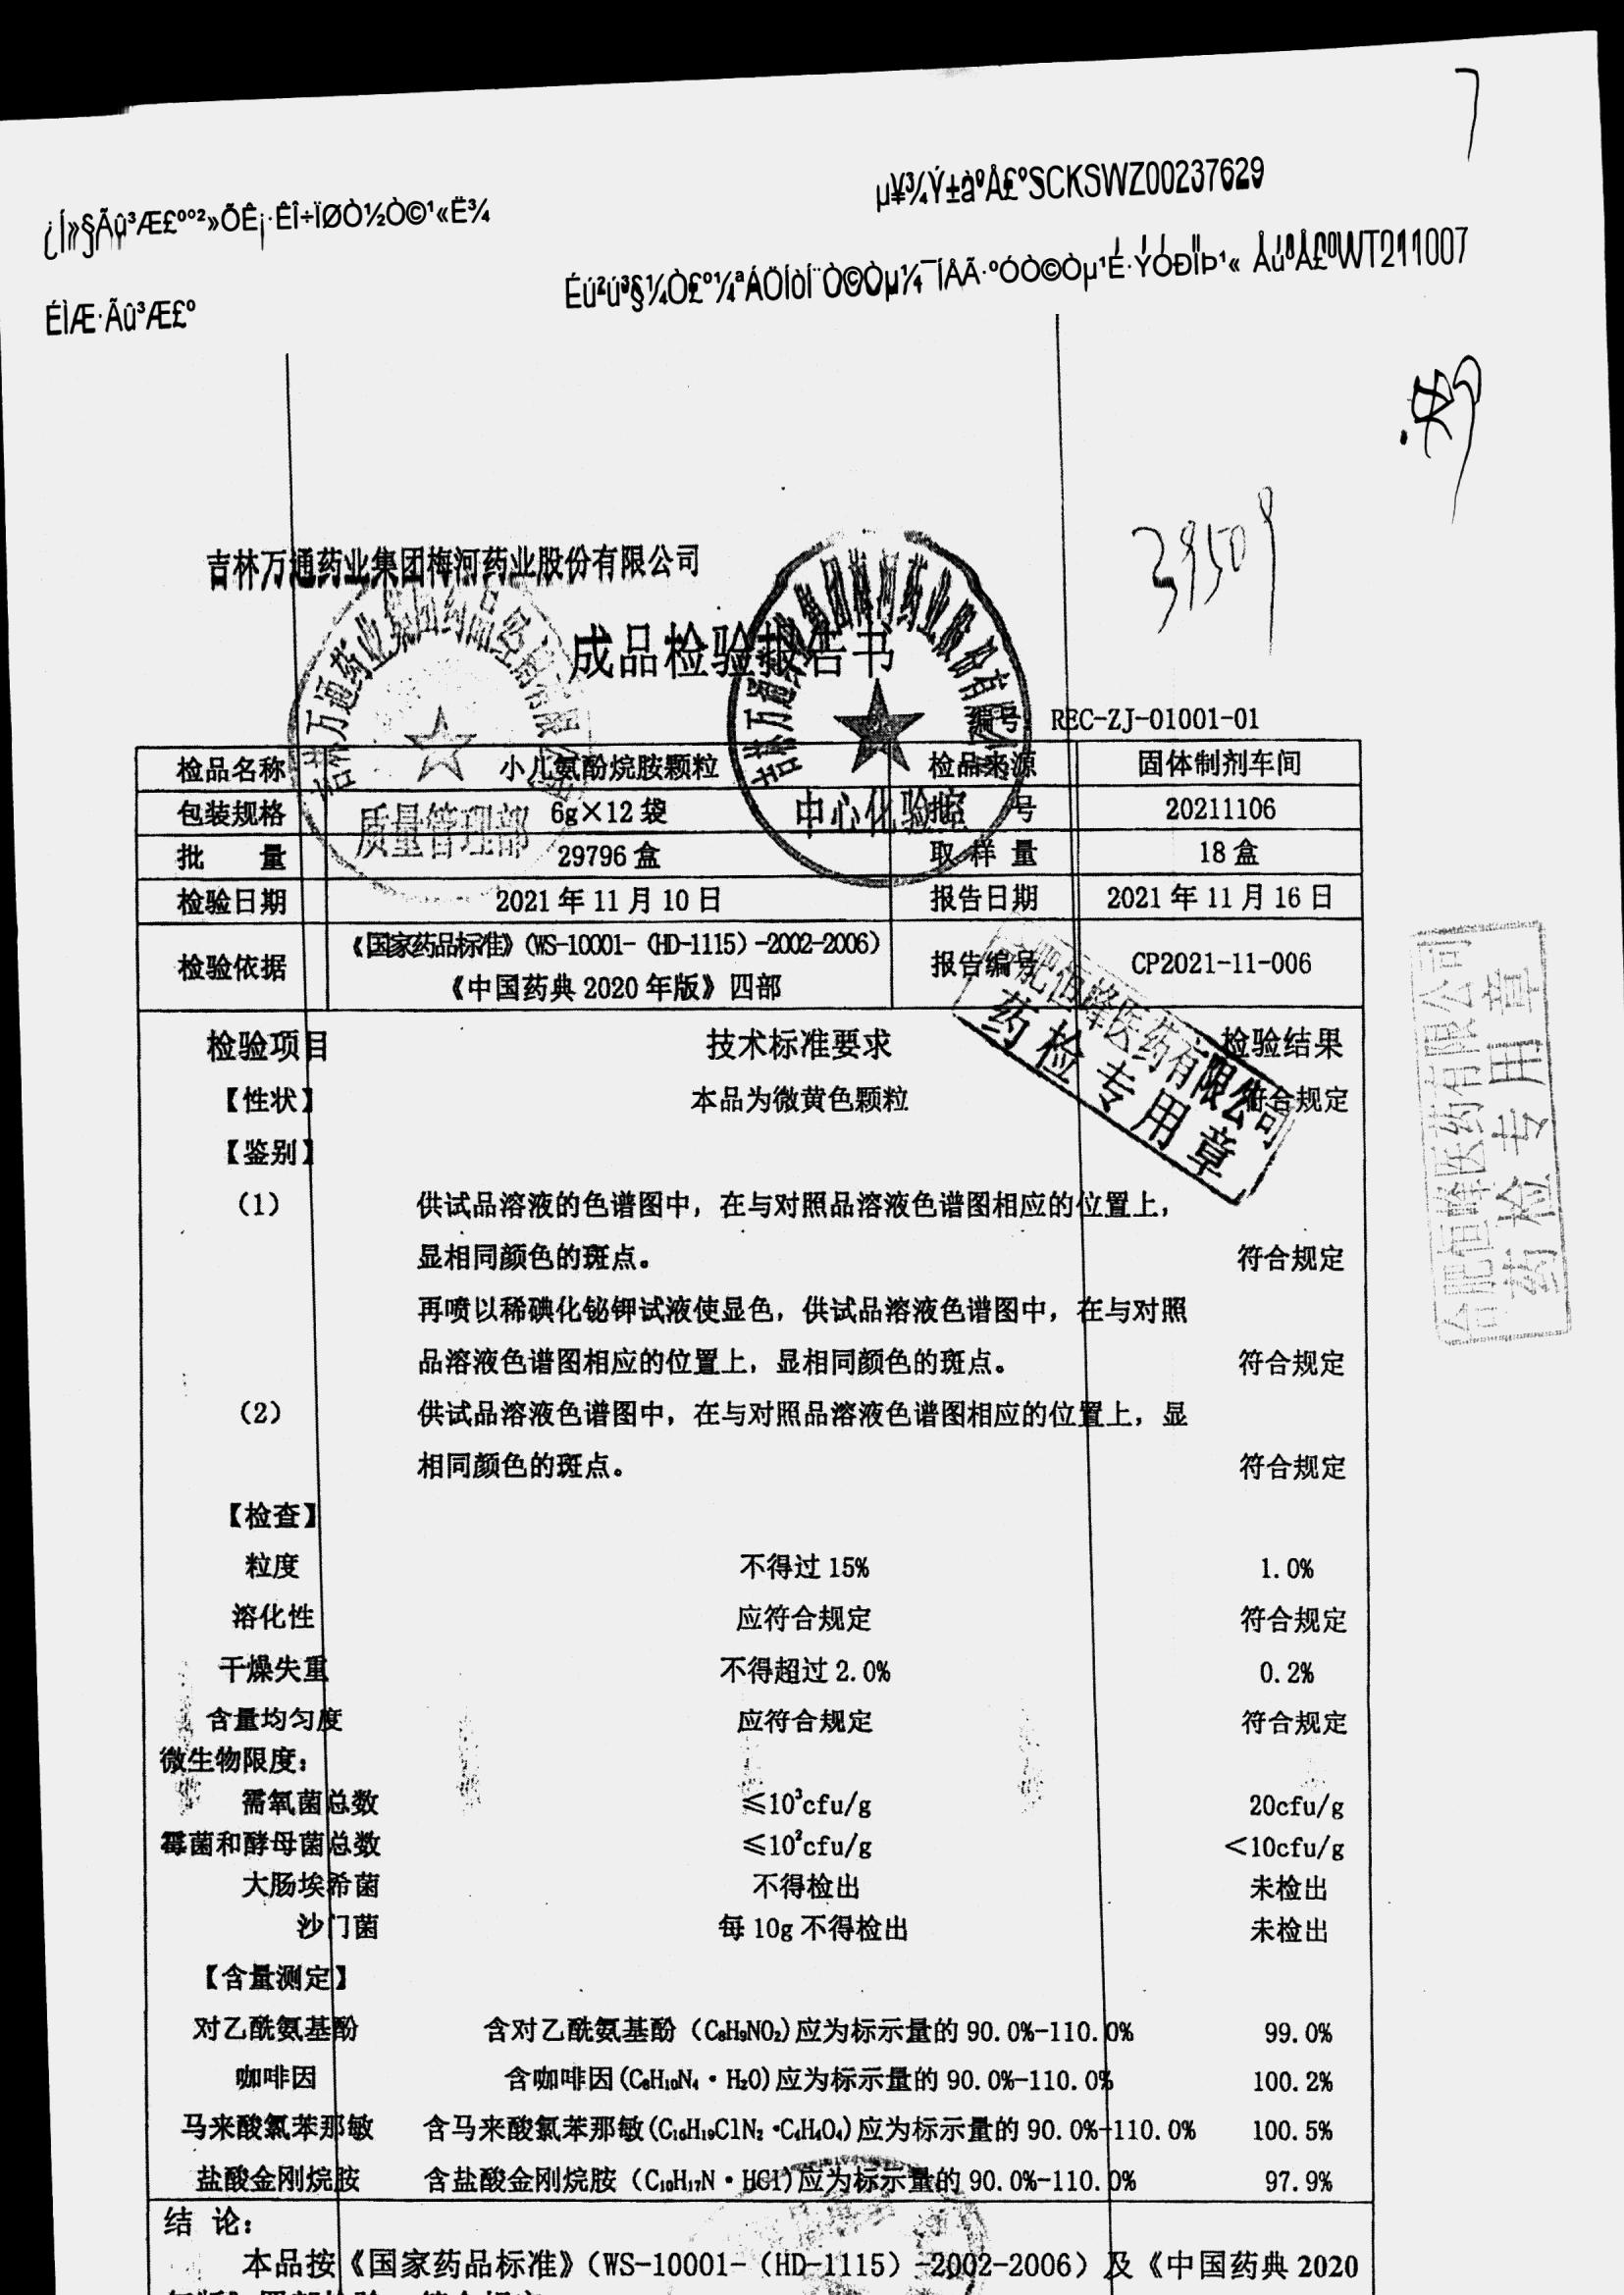 µ¥¾Ý±àºÅ£ºSCKSWZ00237629
¿Í»§Ãû³Æ£º°²»ÕÊ¡·ÊÎ÷ÏØÒ½Ò©¹«Ë¾
Éú²ú³§¼Ò£º¼ªÁÖÍòÍ¨Ò©Òµ¼¯ÍÅÃ·ºÓÒ©Òµ¹É·ÝÓÐÏÞ¹« ÅúºÅ£ºWT211007
ÉÌÆ·Ãû³Æ£º
吉林万通药业集团梅河药业股份有限公司
成品检验报告书
编号 REC-ZJ-01001-01
检品名称 小儿氨酚烷胺颗粒 检品来源 固体制剂车间
包装规格 6g×12 袋 批 号 20211106
批 量 29796 盒 取 样 量 18 盒
检验日期 2021 年 11 月 10 日 报告日期 2021 年 11 月 16 日
检验依据 《国家药品标准》(WS-10001-（HD-1115）-2002-2006)
《中国药典 2020 年版》四部 报告编号 CP2021-11-006
吉林万通药业集团药品经销有限公司
质量管理部
吉林万通药业集团梅河药业股份有限公司
中心化验室
合肥恒峰医药有限公司
药检专用章
合肥恒峰医药有限公司
药检专用章
检验项目 技术标准要求 检验结果
【性状】 本品为微黄色颗粒 符合规定
【鉴别】
（1） 供试品溶液的色谱图中，在与对照品溶液色谱图相应的位置上，
显相同颜色的斑点。 符合规定
再喷以稀碘化铋钾试液使显色，供试品溶液色谱图中，在与对照
品溶液色谱图相应的位置上，显相同颜色的斑点。 符合规定
（2） 供试品溶液色谱图中，在与对照品溶液色谱图相应的位置上，显
相同颜色的斑点。 符合规定
【检查】
粒度 不得过 15% 1.0%
溶化性 应符合规定 符合规定
干燥失重 不得超过 2.0% 0.2%
含量均匀度 应符合规定 符合规定
微生物限度：
需氧菌总数 ≤10³cfu/g 20cfu/g
霉菌和酵母菌总数 ≤10²cfu/g ＜10cfu/g
大肠埃希菌 不得检出 未检出
沙门菌 每 10g 不得检出 未检出
【含量测定】
对乙酰氨基酚 含对乙酰氨基酚（C₈H₉NO₂)应为标示量的 90.0%-110.0% 99.0%
咖啡因 含咖啡因(C₈H₁₀N₄·H₂O)应为标示量的 90.0%-110.0% 100.2%
马来酸氯苯那敏 含马来酸氯苯那敏(C₁₆H₁₉ClN₂·C₄H₄O₄)应为标示量的 90.0%-110.0% 100.5%
盐酸金刚烷胺 含盐酸金刚烷胺（C₁₀H₁₇N·HCl)应为标示量的 90.0%-110.0% 97.9%
结 论：
本品按《国家药品标准》（WS-10001-（HD-1115）-2002-2006）及《中国药典 2020